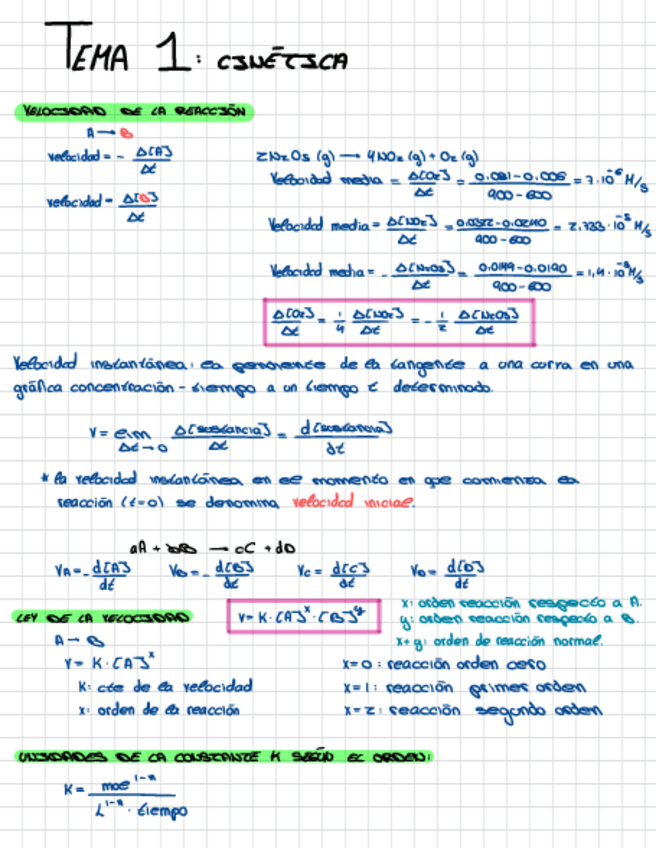 TEMA 1: CINÉTICA
VELOCIDAD DE LA REACCIÓN
A → B
velocidad = - Δ[A]/Δt
velocidad = Δ[B]/Δt
2N2O5 (g) → 4NO2 (g) + O2 (g)
Velocidad media = Δ[O2]/Δt = 900-600 = 7·10^-6 M/s
Velocidad media = Δ[NO2]/Δt = 900-600 M/s
Velocidad media = - Δ[N2O5]/Δt = 0.0149-0.0190/900-600 = 1,4·10 M/s
Δ[O2]/Δt = 1/4 Δ[NO2]/Δt = - 1/2 Δ[N2O5]/Δt
Velocidad instantánea: es pendiente de la tangente a una curva en una
gráfica concentración - tiempo a un tiempo t determinado.
V = lim Δt→0 Δ[sustancia]/Δt = d[sustancia]/dt
* la velocidad instantánea en el momento en que comienza la
reacción (t=0) se denomina velocidad inicial.
aA + bB → cC + dD
VA = - d[A]/dt VB = - d[B]/dt VC = d[C]/dt VD = d[D]/dt
LEY DE LA VELOCIDAD
V = K · [A]^x · [B]^y
x: orden reacción respecto a A.
y: orden reacción respecto a B.
x+y: orden de reacción normal.
A → B
V = K · [A]^x
K: cte de la velocidad
x: orden de la reacción
x=0: reacción orden cero
x=1: reacción primer orden
x=2: reacción segundo orden
UNIDADES DE LA CONSTANTE K SEGÚN EL ORDEN:
K = mol^1-n / L^1-n · tiempo